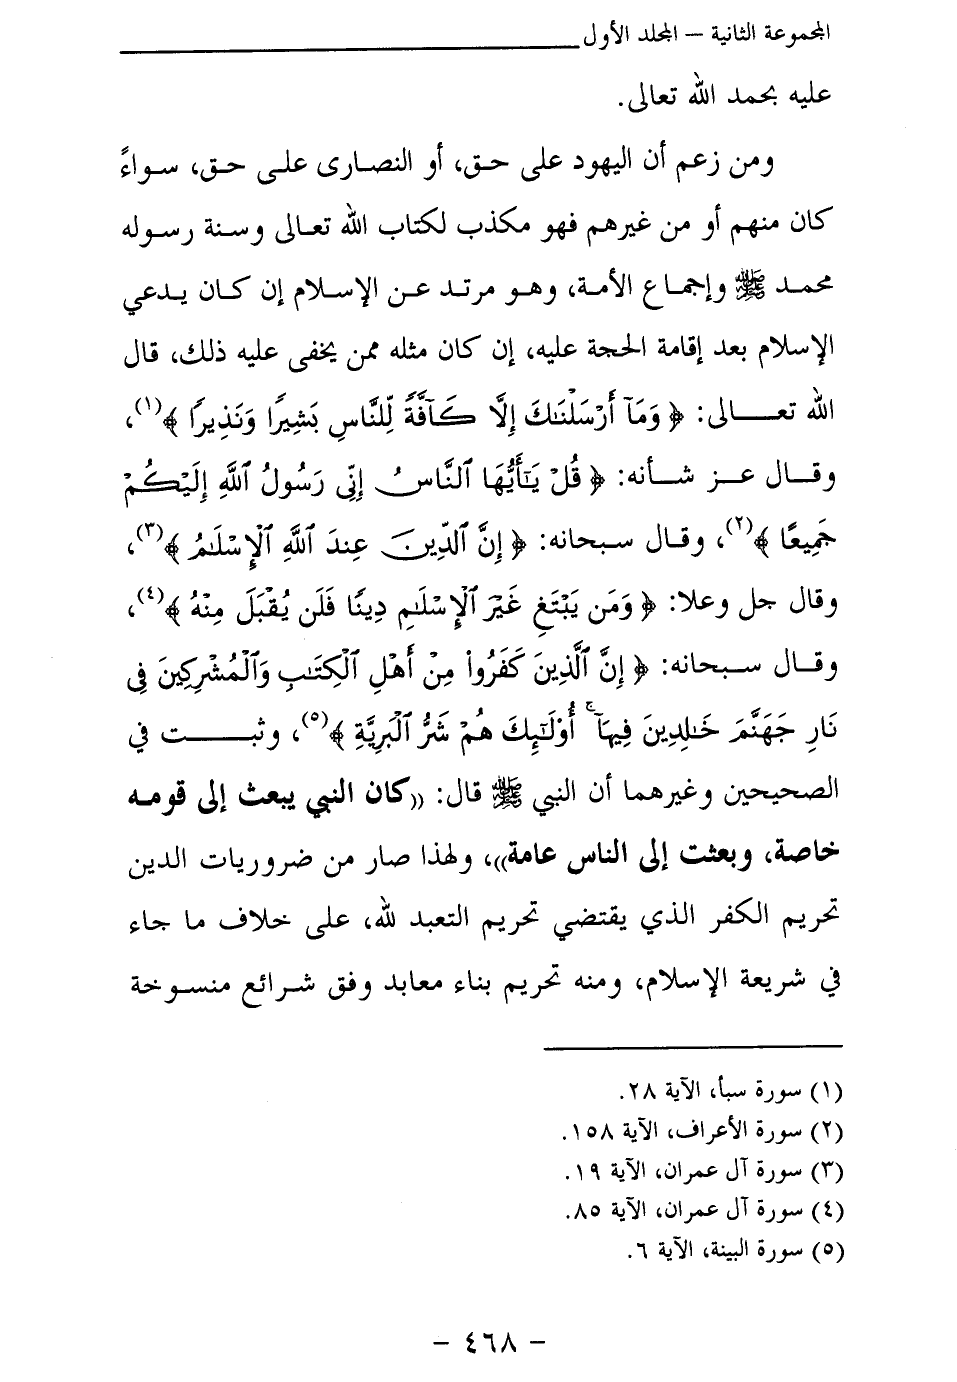 المجموعة الثانية – المجلد الأول
عليه بحمد الله تعالى.
ومن زعم أن اليهود على حق، أو النصارى على حق، سواءً
كان منهم أو من غيرهم فهو مكذب لكتاب الله تعالى وسنة رسوله
محمد ﷺ وإجماع الأمة، وهو مرتد عن الإسلام إن كان يدعي
الإسلام بعد إقامة الحجة عليه، إن كان مثله ممن يخفى عليه ذلك، قال
الله تعالى: ﴿ وَمَآ أَرْسَلْنَٰكَ إِلَّا كَآفَّةً لِّلنَّاسِ بَشِيرًا وَنَذِيرًا ﴾(١)،
وقال عز شأنه: ﴿ قُلْ يَٰٓأَيُّهَا ٱلنَّاسُ إِنِّى رَسُولُ ٱللَّهِ إِلَيْكُمْ
جَمِيعًا ﴾(٢)، وقال سبحانه: ﴿ إِنَّ ٱلدِّينَ عِندَ ٱللَّهِ ٱلْإِسْلَٰمُ ﴾(٣)،
وقال جل وعلا: ﴿ وَمَن يَبْتَغِ غَيْرَ ٱلْإِسْلَٰمِ دِينًا فَلَن يُقْبَلَ مِنْهُ ﴾(٤)،
وقال سبحانه: ﴿ إِنَّ ٱلَّذِينَ كَفَرُوا۟ مِنْ أَهْلِ ٱلْكِتَٰبِ وَٱلْمُشْرِكِينَ فِى
نَارِ جَهَنَّمَ خَٰلِدِينَ فِيهَآ ۚ أُو۟لَٰٓئِكَ هُمْ شَرُّ ٱلْبَرِيَّةِ ﴾(٥)، وثبت في
الصحيحين وغيرهما أن النبي ﷺ قال: ((كان النبي يبعث إلى قومه
خاصة، وبعثت إلى الناس عامة))، ولهذا صار من ضروريات الدين
تحريم الكفر الذي يقتضي تحريم التعبد لله، على خلاف ما جاء
في شريعة الإسلام، ومنه تحريم بناء معابد وفق شرائع منسوخة
(١) سورة سبأ، الآية ٢٨.
(٢) سورة الأعراف، الآية ١٥٨.
(٣) سورة آل عمران، الآية ١٩.
(٤) سورة آل عمران، الآية ٨٥.
(٥) سورة البينة، الآية ٦.
– ٤٦٨ –